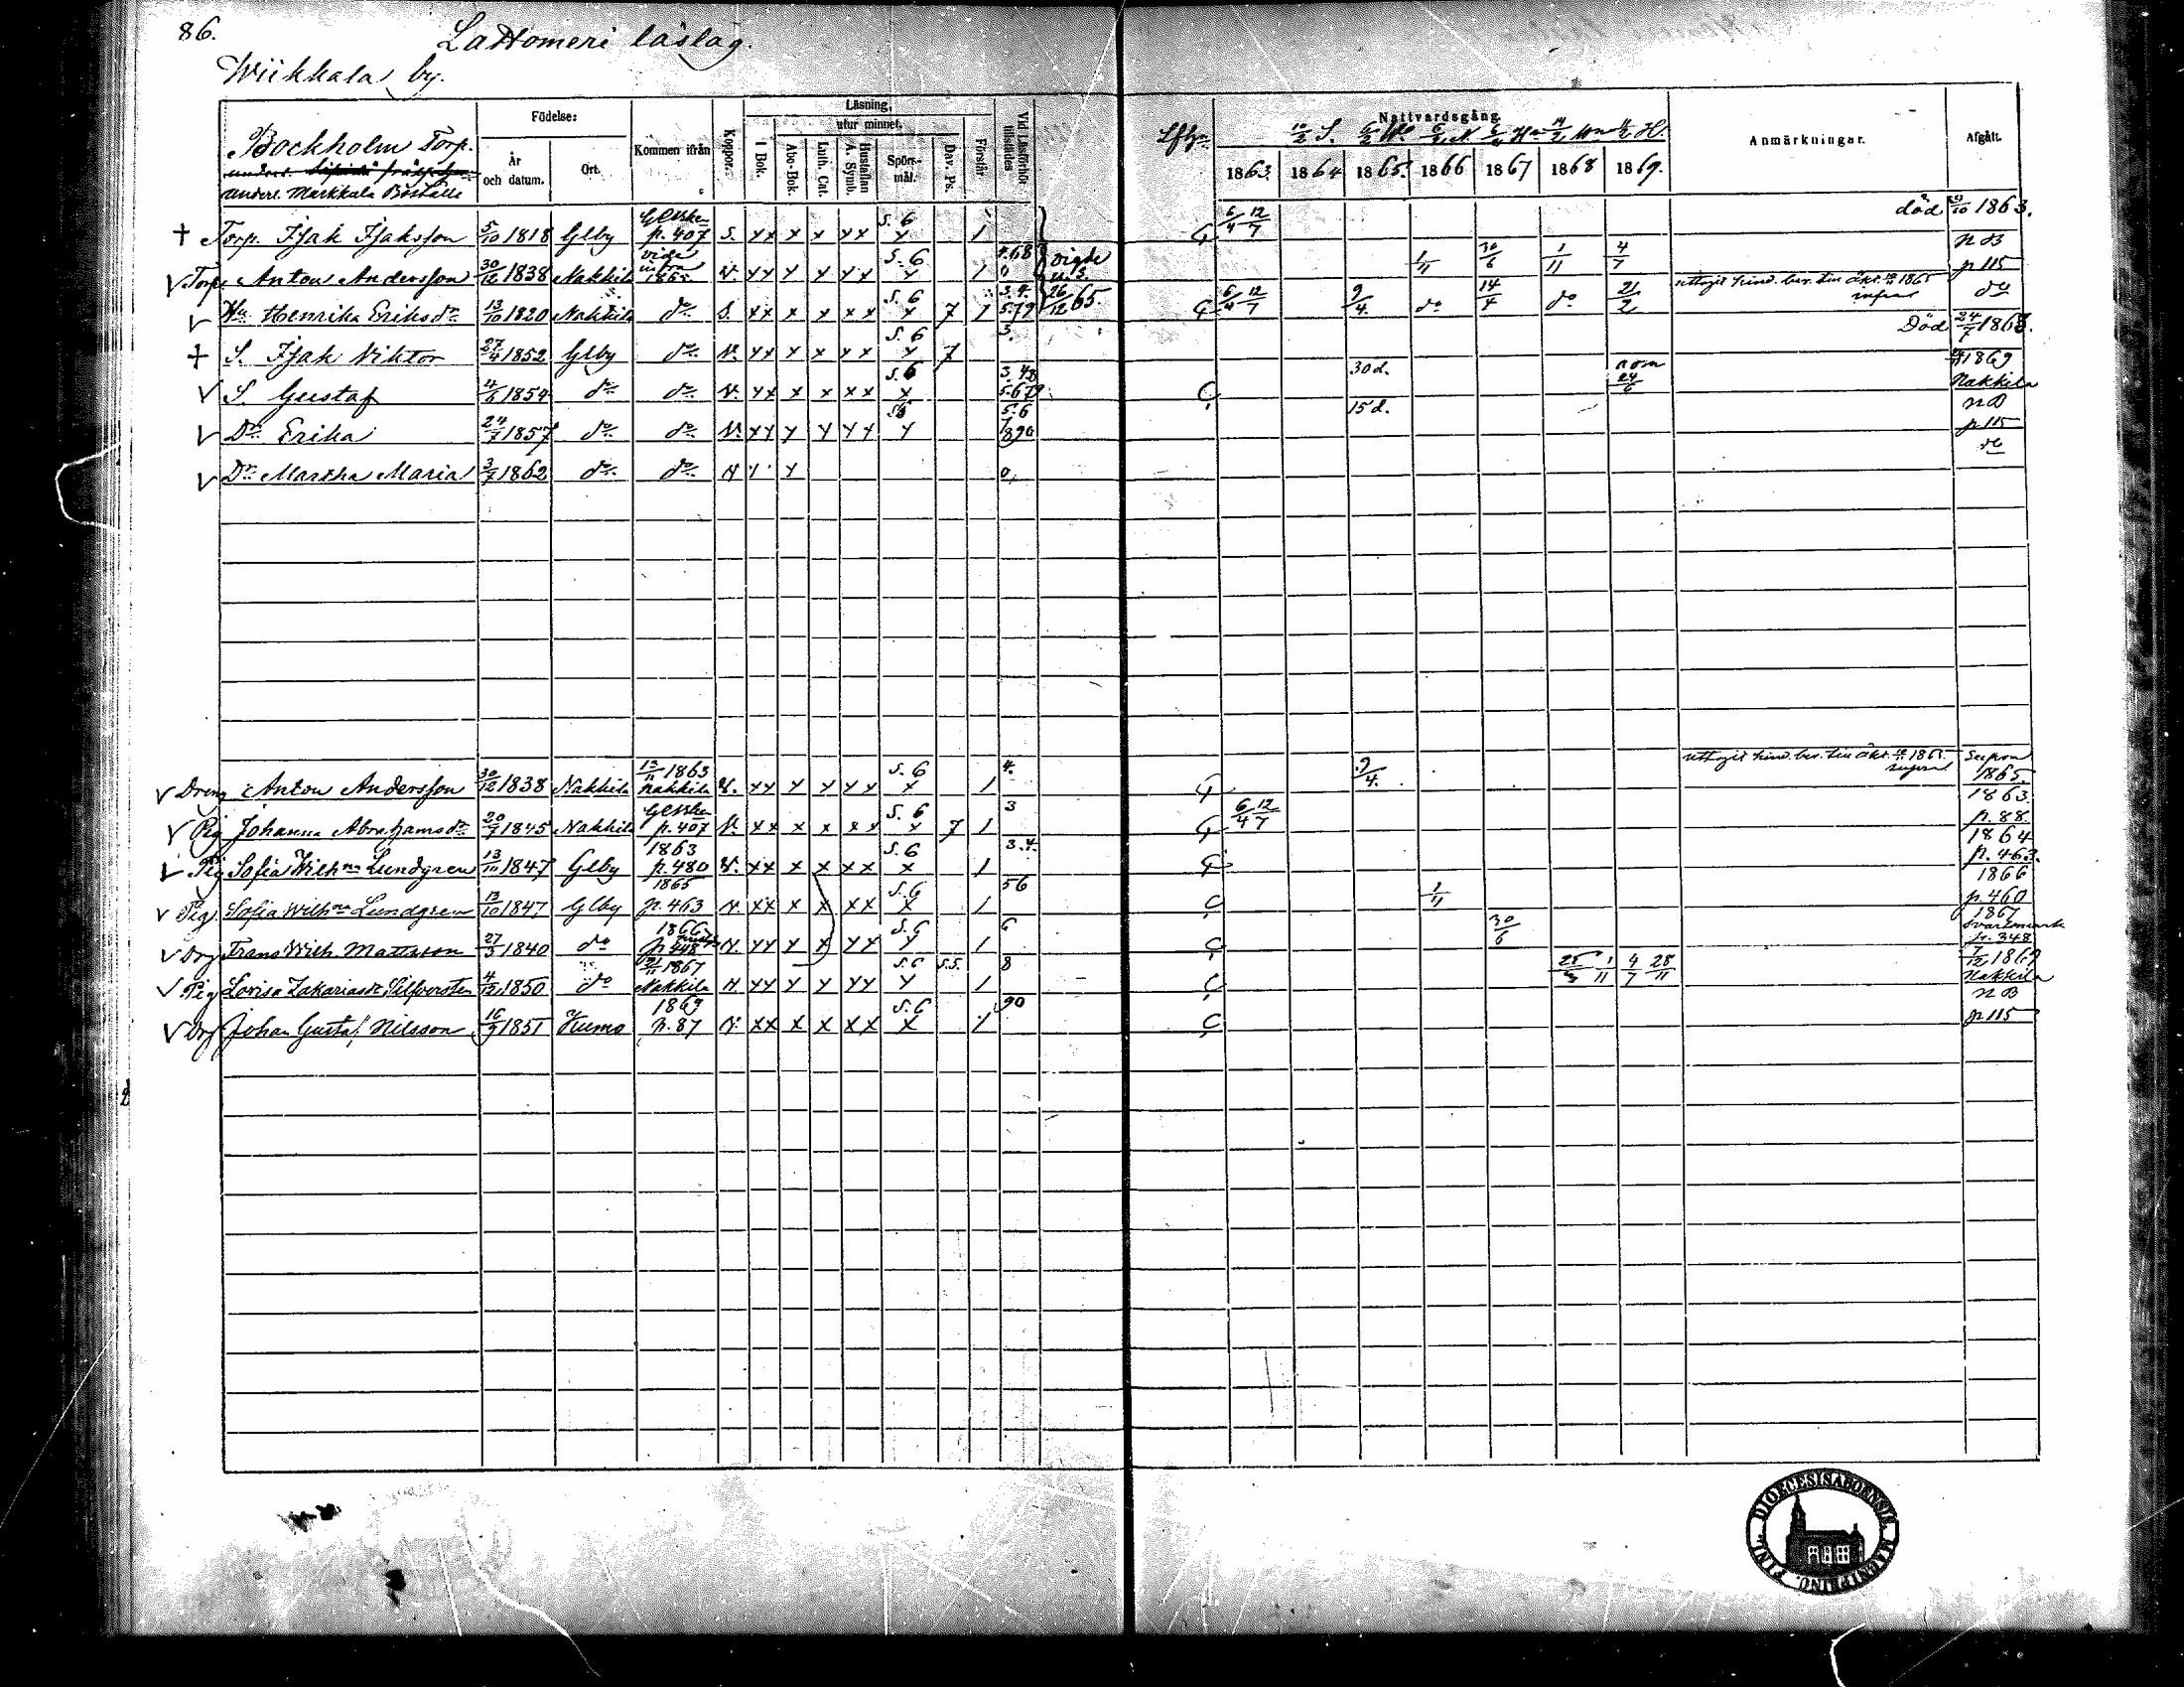 86. Lattomeri läslag.
Wiikkala by.
Bockholm Torp.
underl. Markkula Boställe
Födelse:
År och datum.
Ort.
Kommen ifrån
Koppor.
Läsning,
utur minnet.
I Bok.
Abc-Bok.
Luth. Cat.
Hustaflan A. Symb.
Spörs-mål.
Dav. Ps.
Förstår
Vid Läsförhör tillstädes
Nattvardsgång.
1863. 1864 1865. 1866 1867 1868 1869.
Anmärkningar.
Afgått.
† Torp. Isak Isaksson 5/10 1818 Glby p. 407 S. xx x x xx S. 6 x 1 6/4 12/7 död 1863.
V Torp. Anton Andersson 30/12 1838 Nakkila vide 1865 V. xx x x xx S. 6 x 1 vigde 1/11 30/6 1/11 4/7 NB p 115
V Hu Henrika Eriksdr 13/10 1820 Nakkila do S. xx x x xx S. 6 x 7 1 26/12 65. 6/4 12/7 9/4. do 14/4 do 21/2 uttagit hind. bev. till äkt. 1865 do
† S. Isak Viktor 27/4 1852 Glby do V. xx x x xx S. 6 x 7 3. Död 24/7 1863.
V S. Gustaf 4/5 1854 do do V. xx x x xx S. 6 x 30 d. 24/6 1869 Nakkila
V Dr Erika 24/7 1857 do do V. xx x x xx x 15 d. NB p 115
V Dr Martha Maria 3/7 1862 do do V do
V Dreng Anton Andersson 30/12 1838 Nakkila 13/11 1863 Nakkila V. xx x x xx S. 6 x 1 4. 9/4. uttagit hind. bev. till äkt. 1865. supra Supra 1865.
V Pig Johanna Abrahamsdr 20/7 1845 Nakkila p. 407 V. xx x x xx S. 6 x 7 1 3 6/4 12/7 1863. p. 88.
V Pig Sofia Wilhna Lundgren 13/10 1847 Glby 1863 p. 480 V. xx x x xx S. 6 x 1 3.4. 1864 p. 463.
V Pig. Sofia Wilhna Lundgren 13/10 1847 Glby 1865 p. 463 V. xx x x xx S. 6 x 1 56 1/11 1866 p. 460
V Drg Frans Wilh. Mattsson 27/3 1840 do 1866 V. xx x x xx S. 6 x 1 6 30/6 1867 Svartsmark p. 348
V Pig Lovisa Zakariasdr Silfversten 4/12 1850 do 1867 Nakkila V. xx x x xx S. 6 x S.5. 1 8 1/11 4/7 28/11 7/12 1869 Nakkila
V Drg Johan Gustaf Nilsson 16/9 1851 Kumo 1869 p. 87 V. xx x x xx S. 6 x 1 90 NB p 115
DIOECESIS ABOENSIS. MAGNI PRINC. FINL.